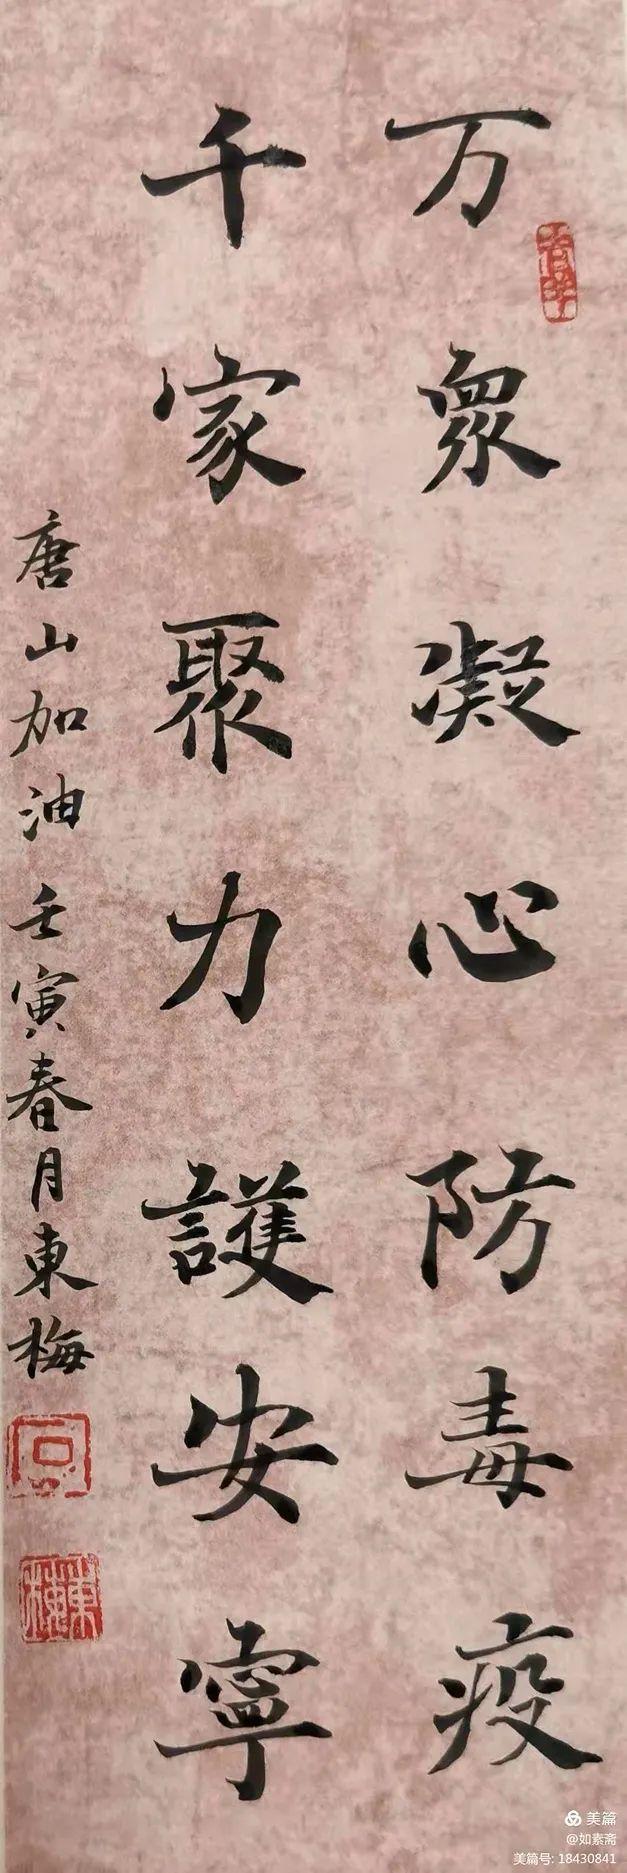 万衆凝心防毒疫
千家聚力護安寧
唐山加油 壬寅春月東梅
東梅
美篇
@如素斋
美篇号: 18430841